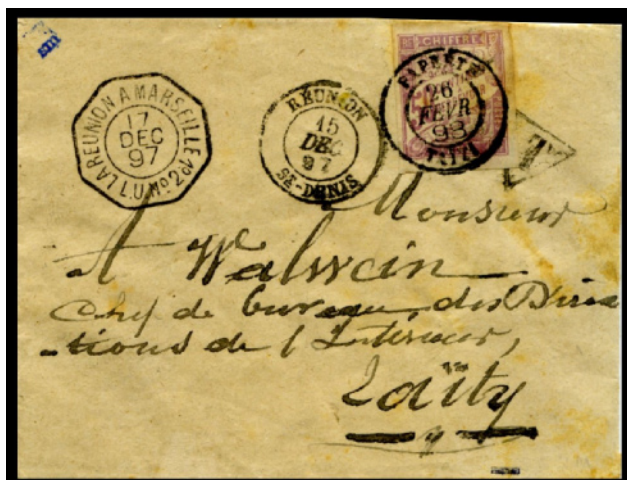 LA REUNION A MARSEILLE
17
DEC
97
L.U. No 2
RÉUNION
15
DEC
97
ST-DENIS
CHIFFRE
PAPEETE
26
FEVR
98
TAITI
T
Monsieur
A Walwein
Chef de bureau des Direc
-tions de l'Intérieur,
Taïty